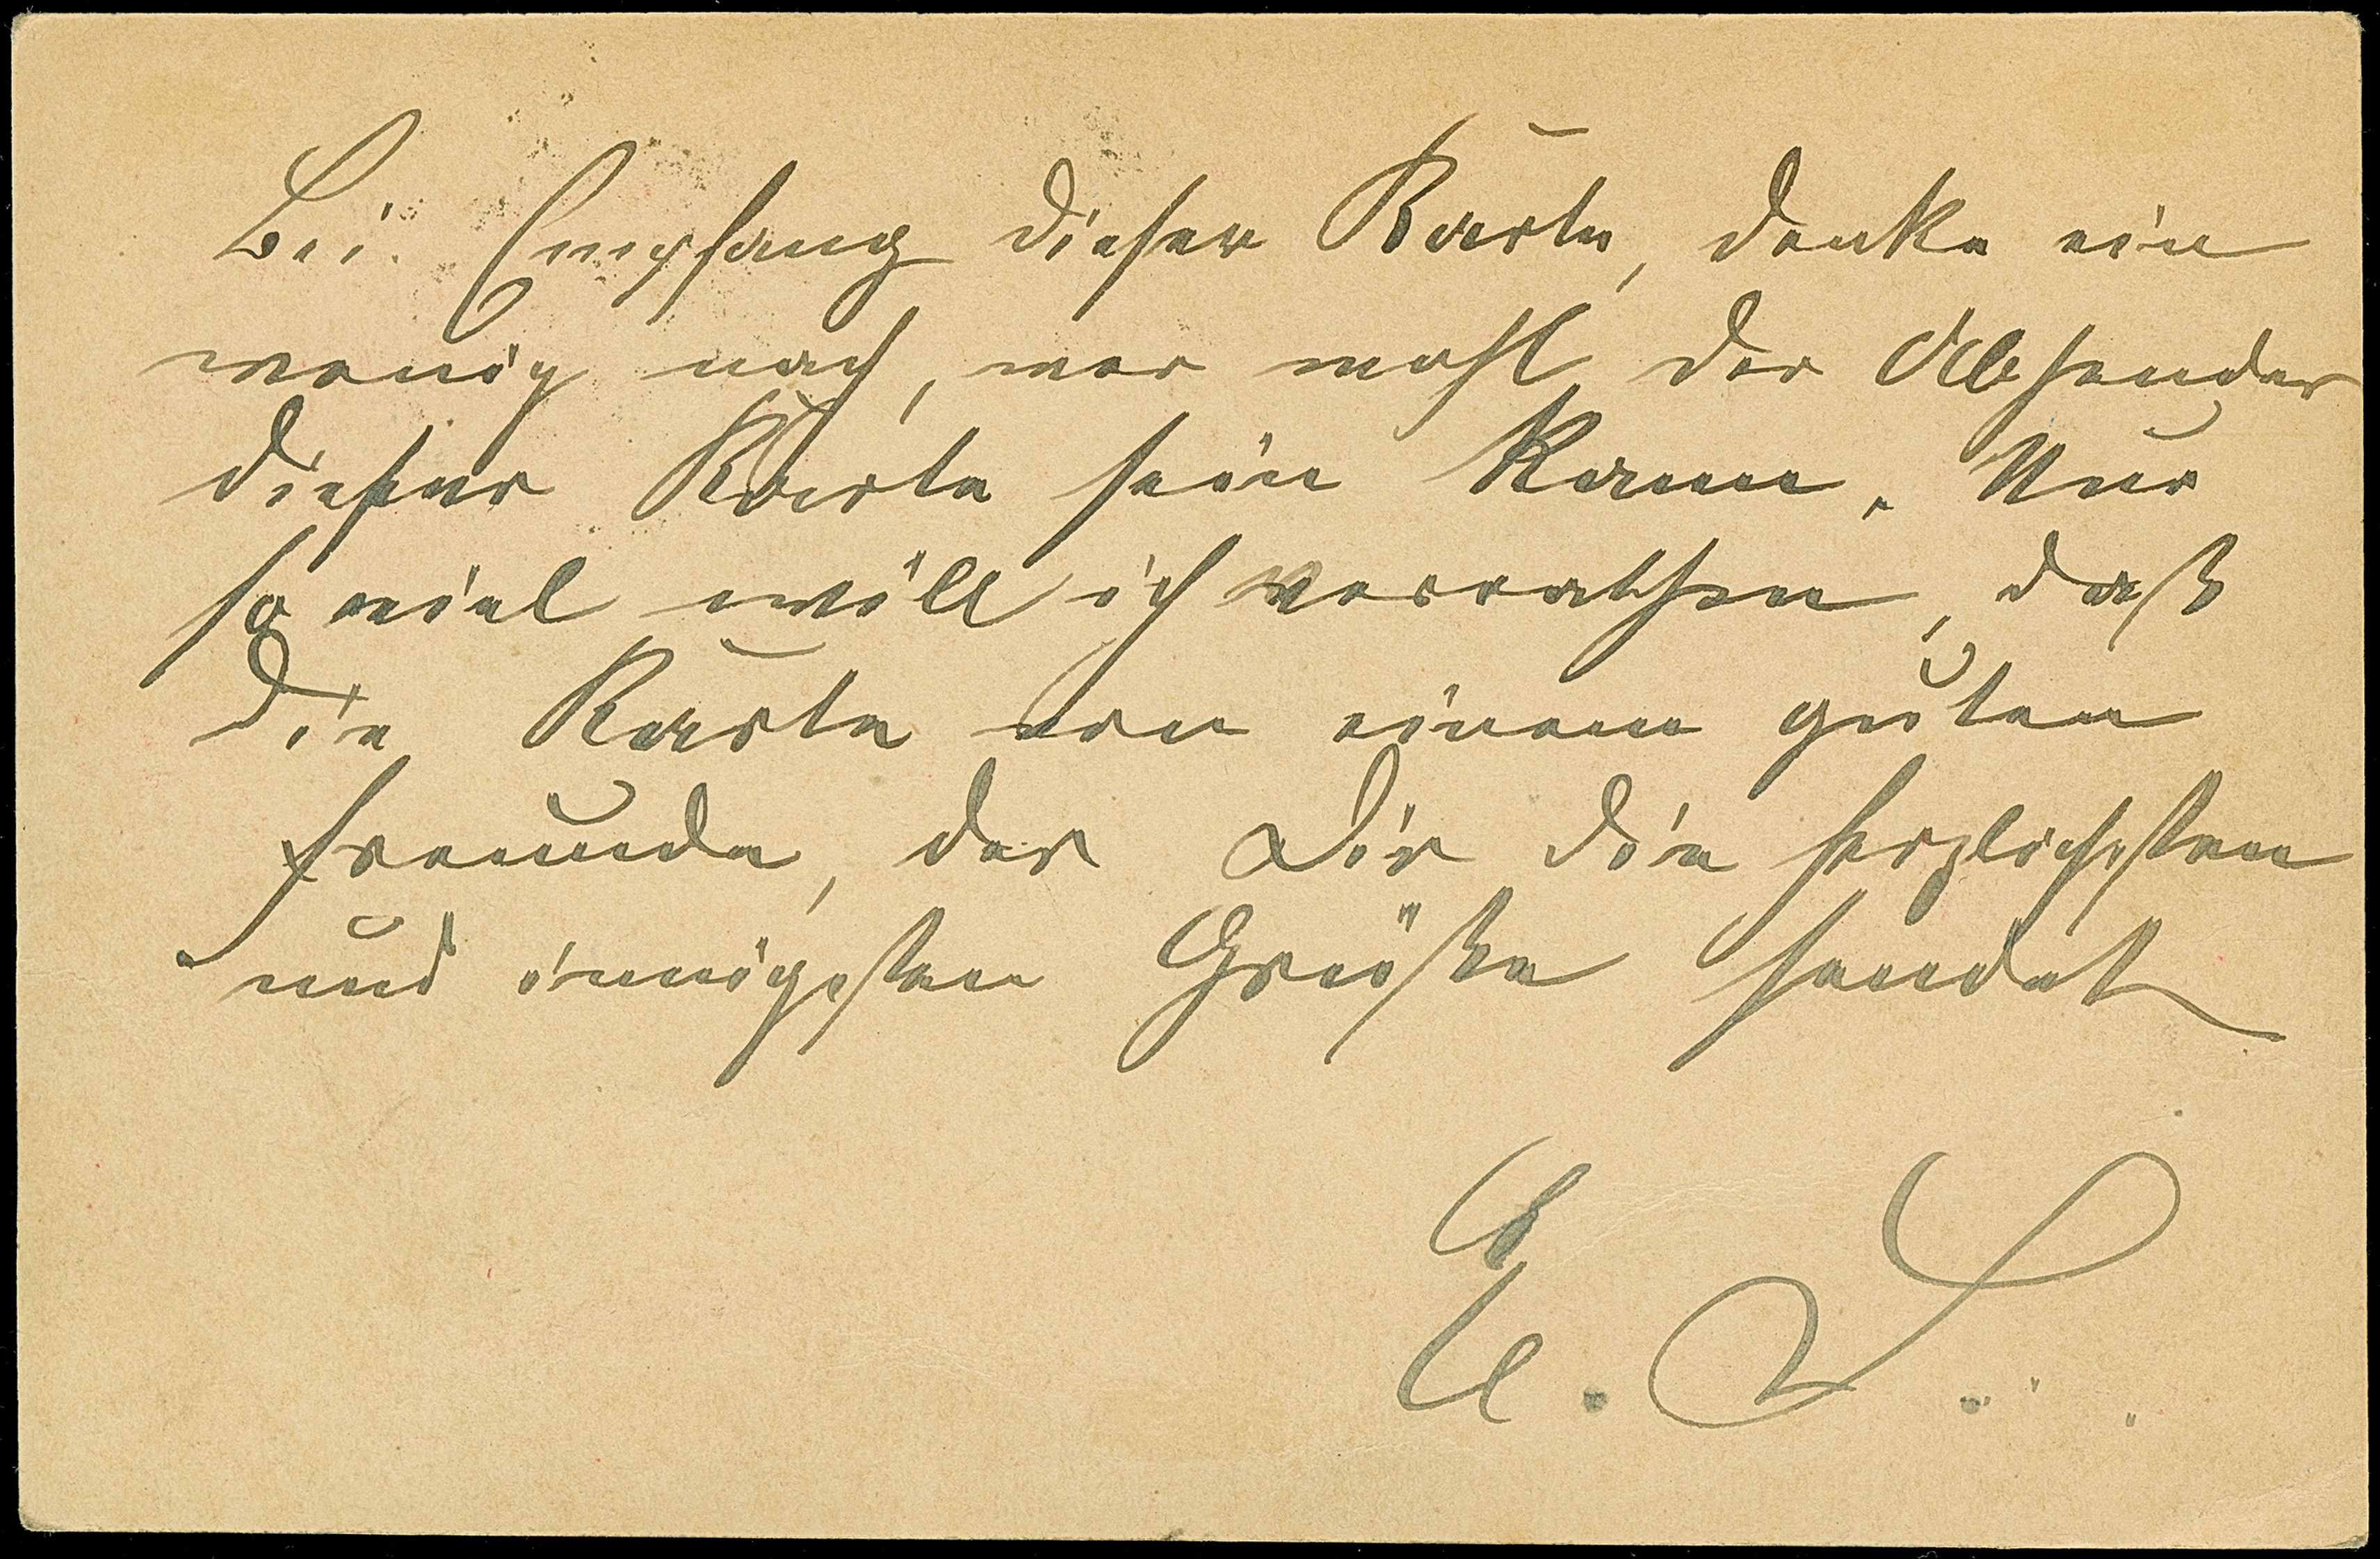 Bei Empfang dieser Karte, denke ein
wenig nach, wer wohl der Absender
dieser Karte sein kann. Nur
so viel will ich verrathen, daß
die Karte von einem guten
Freunde, der Dir die herzlichsten
und innigsten Grüße sendet
E. L...